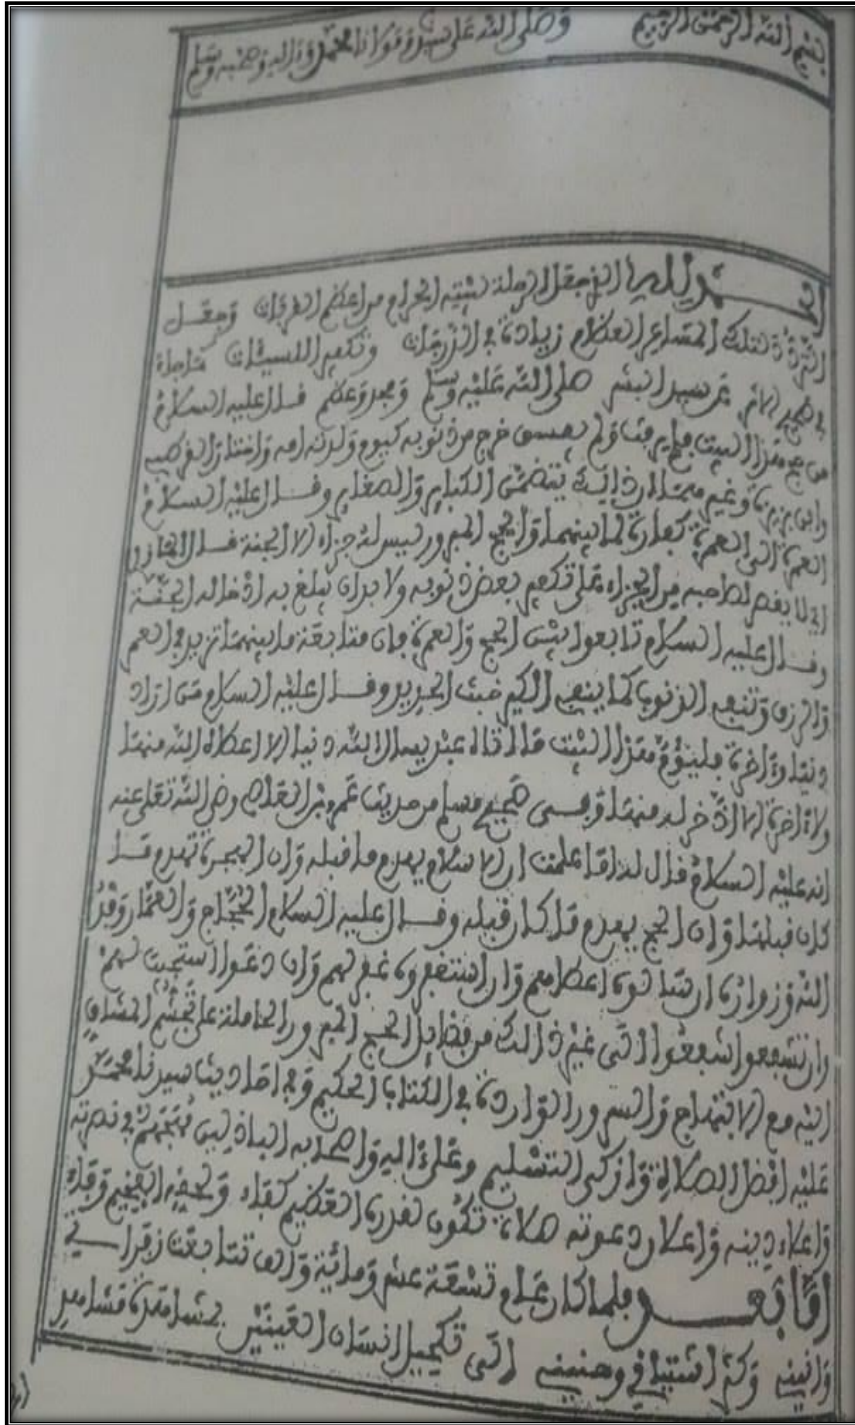 بسم الله الرحمن الرحيم وصلى الله على سيدنا ومولانا محمد وءاله وصحبه وسلم
الحمد لله الذي جعل الرحلة لبيته الحرام من اعظم القربات وجعل
التردد لتلك المشاعر العظام زيادة في الدرجات وتكفير اللسيئات
عن سيد البشر صلى الله عليه وسلم ومجد وعظم قال عليه السلام
من حج هذا البيت فلم يرفث ولم يفسق خرج من ذنوبه كيوم ولدته امه واختار القرطبي
وابن بزيزة وغيرهما ان ذالك يتضمن الكباير والصغاير وقال عليه السلام
العمرة الى العمرة كفارة لما بينهما والحج المبرور ليس له جزاء الا الجنة قال
اي لا يقصر لصاحبه من الجزاء على تكفير بعض ذنوبه ولا بد ان يبلغ به ادخاله الجنة
وقال عليه السلام تابعوا بين الحج والعمرة فان متابعة ما بينهما تزيد في العمر
والرزق وتنفي الذنوب كما ينفي الكير خبث الحديد وقال عليه السلام من اراد
دنيا وءاخرة فليؤم هذا البيت ما اتاه عبد يسال الله دنيا الا اعطاه الله منها
ولا ءاخرة الا ادخر له منها وفي صحيح مسلم من حديث عمرو بن العاص رضي الله تعلى عنه
انه عليه السلام قال له اما علمت ان الاسلام يهدم ما قبله وان الهجرة تهدم ما
كان قبلها وان الحج يهدم ما كان قبله وقال عليه السلام الحجاج والعمار وفد
الله وزواره ان سالوه اعطاهم وان استغفروه غفر لهم وان دعوا استجيب لهم
وان شفعوا شفعوا الى غير ذالك من فضايل الحج المبرور الحاملة على تجشم المشاق
اليه مع الابتهاج والسرور الواردة في الكتاب الحكيم وفي احاديث سيدنا محمد
عليه افضل الصلاة وازكى التسليم وعلى ءاله واصحابه الباذلين مهجهم في نصرته
واعلاء دينه واعلان دعوته صلاة تكون لقدره العظيم كفاء ولحقه الفخيم وفاء
اما بعد فلما كان عام تسعة عشر ومائة والف تتابعت زفراتي
وانيني وكثر اشتياقي وحنيني الى تكحيل انسان العينين بمشاهدة